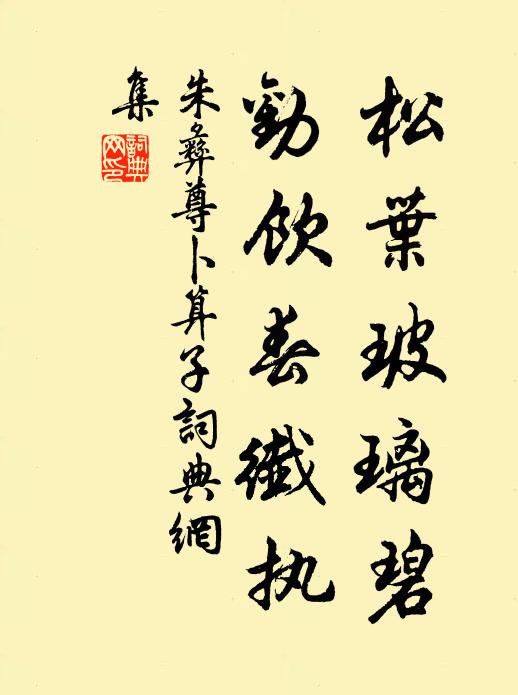 松葉玻璃碧
勸飲春纖执
朱彝尊卜算子詞典網
集
詞典网印